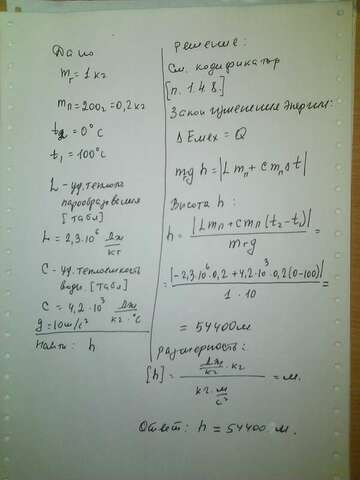 Дано
mг = 1 кг
mп = 200г = 0,2 кг
t2 = 0°C
t1 = 100°C
L - уд. теплота
парообразования
[табл]
L = 2,3·10⁶ дж/кг
C - уд. теплоемкость
воды. [табл]
C = 4,2·10³ дж/кг·°C
g = 10 м/с²
Найти: h
Решение:
См. кодификатор
[п. 1.4.8.]
Закон изменения энергии:
ΔEмех = Q
mгg h = |L mп + c mп Δt|
Высота h:
h = |L mп + c mп (t2 - t1)| / mгg =
= |-2,3·10⁶·0,2 + 4,2·10³·0,2(0-100)| / 1·10 =
= 54400м
размерность:
[h] = дж/кг · кг / кг · м/с² = м.
Ответ: h = 54400 м.